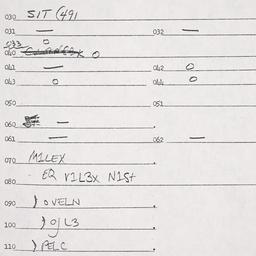 030 SIT (491
031 — 032 —
033 O
040 O
041 — 042 O
043 O 044 O
050 051
060 —
061 — 062 —
070 MILEX
080 EQ V1L3X N1St
090 ) OVELN
100 ) OjL3
110 ) PELC